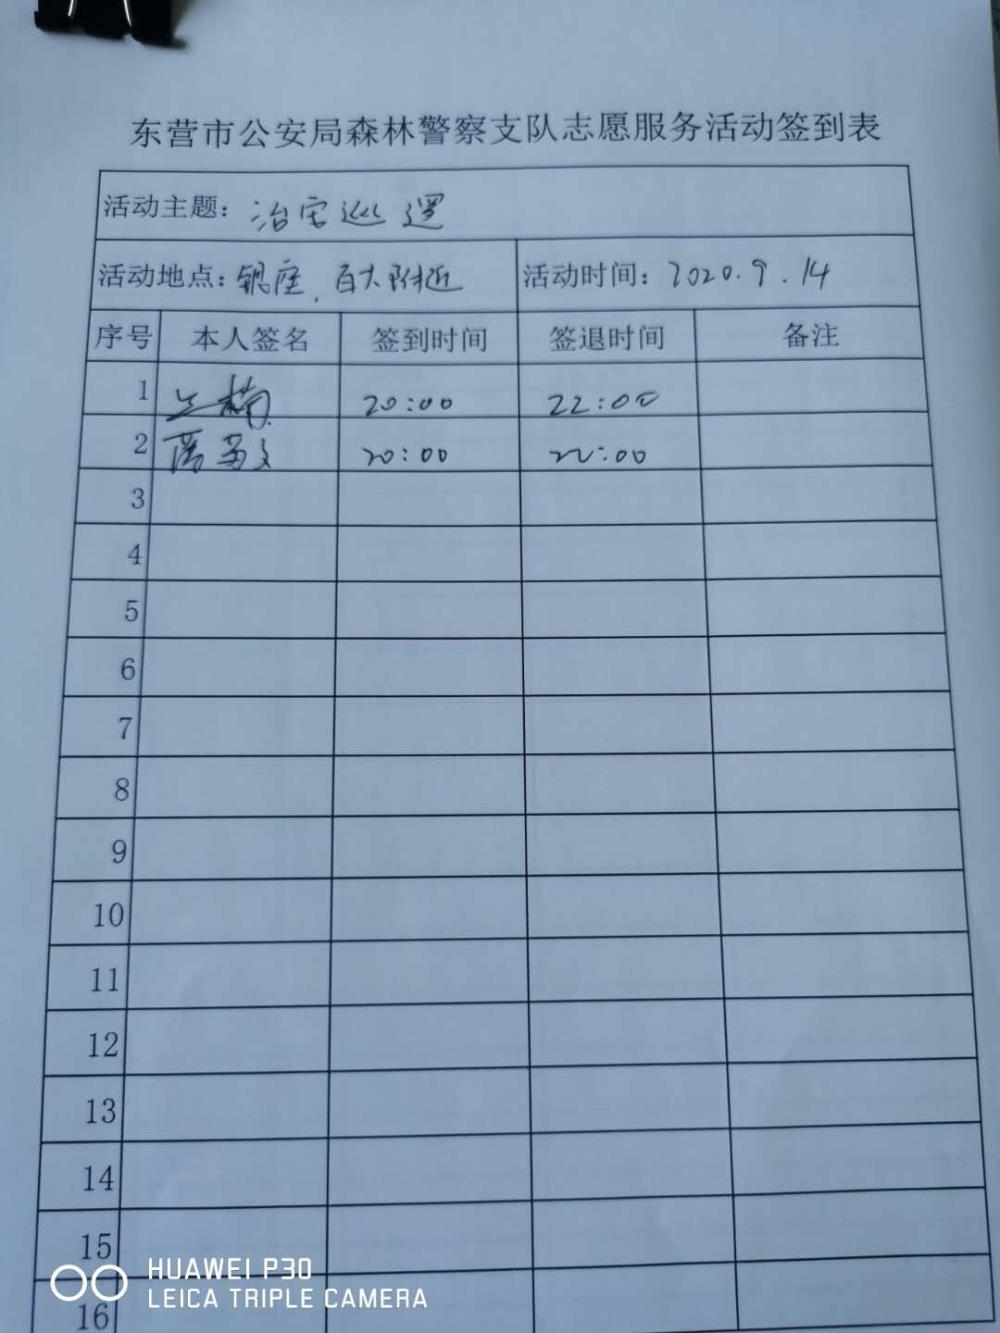 东营市公安局森林警察支队志愿服务活动签到表
活动主题：治安巡逻
活动地点：银座，百大附近 活动时间：2020.9.14
序号 本人签名 签到时间 签退时间 备注
1 20:00 22:00
2 20:00 22:00
3
4
5
6
7
8
9
10
11
12
13
14
15
16
HUAWEI P30
LEICA TRIPLE CAMERA